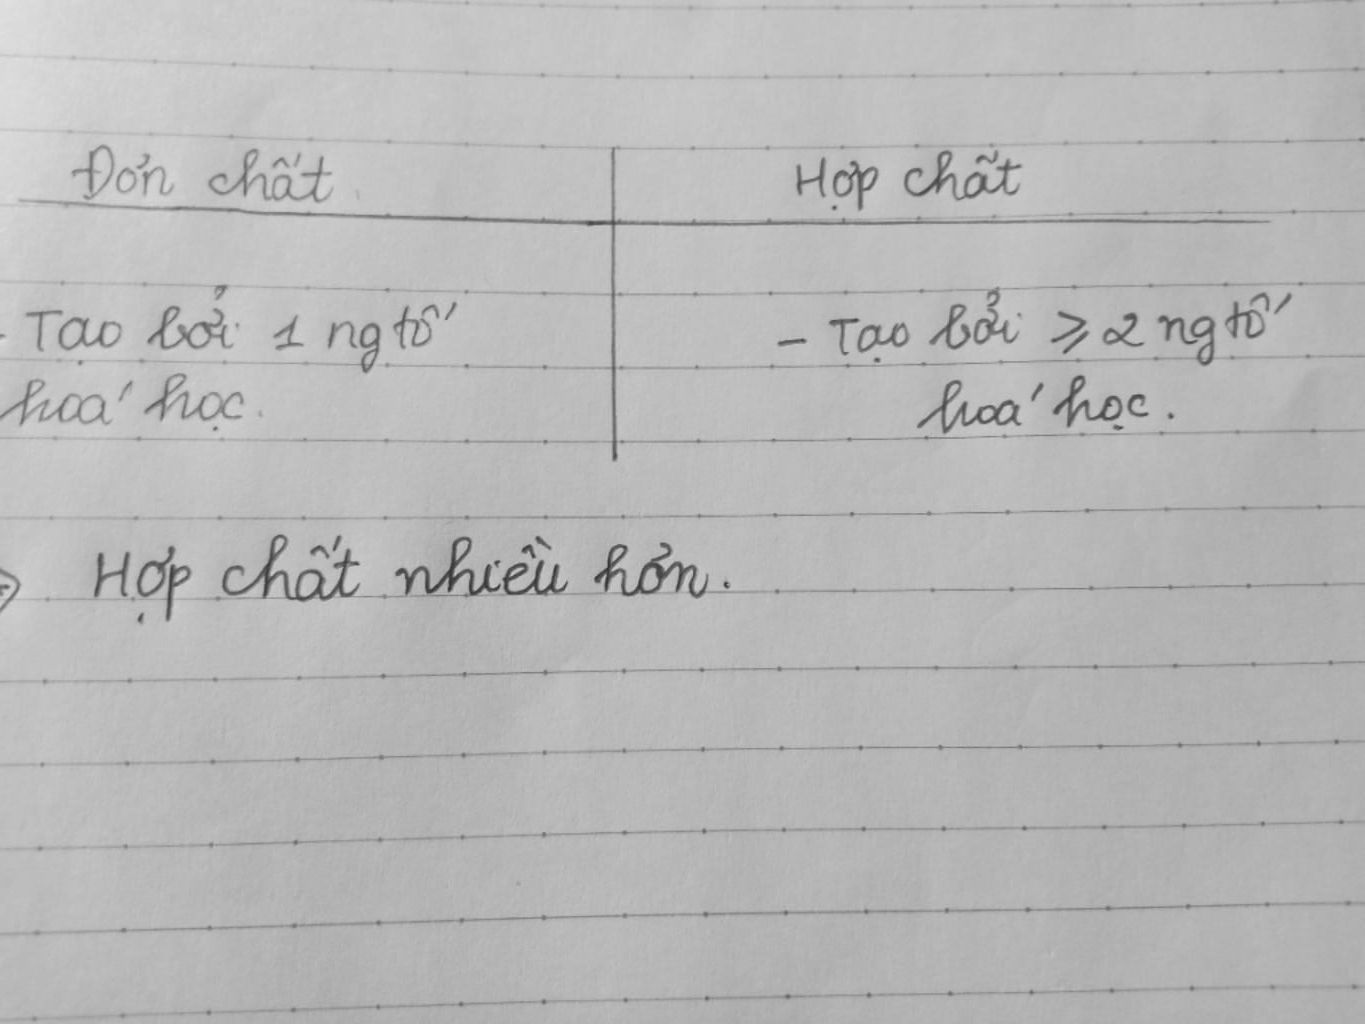 Đơn chất
Hợp chất
- Tạo bởi 1 ng tố
hoá học.
- Tạo bởi ≥ 2 ng tố
hoá học.
⇒ Hợp chất nhiều hơn.